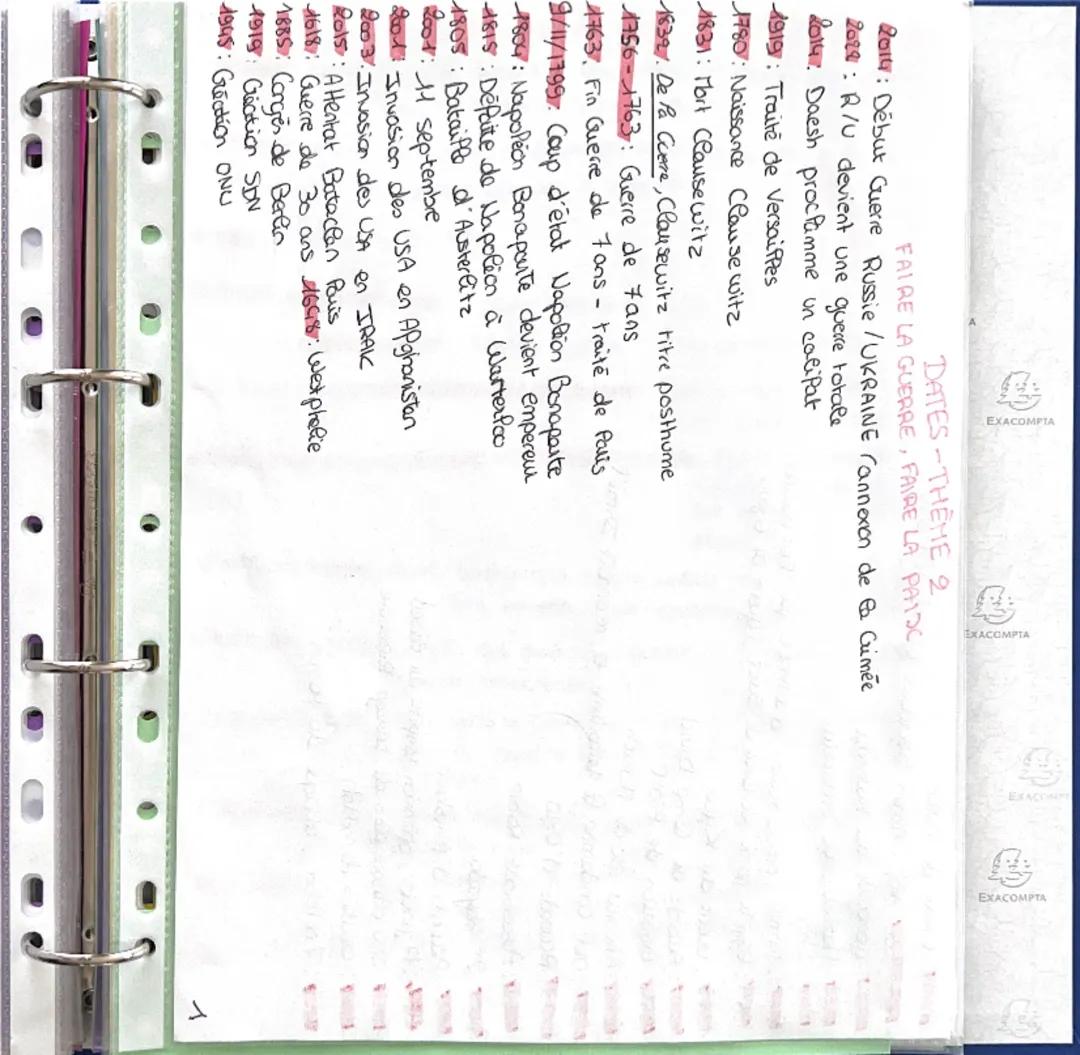 DATES - THÈME 2
FAIRE LA GUERRE, FAIRE LA PAIX
2014 : Début Guerre Russie / UKRAINE l'annexion de la Crimée
2022 : R/U devient une guerre totale
2014 : Daesh proclamme un califat
1919 : Traité de Versailles
1780 : Naissance Clausewitz
1831 : Mort Clausewitz
1832 : De la Guerre, Clausewitz titre posthume
1756-1763 : Guerre de 7ans
1763 : Fin Guerre de 7ans - traité de Paris
9/11/1799 : Coup d'état Napoléon Bonaparte
1804 : Napoléon Bonaparte devient empereur
1815 : Défaite de Napoléon à Watterloo
1805 : Bataille d'Austerlitz
2001 : 11 septembre
2001 : Invasion des USA en Afghanistan
2003 : Invasion des USA en IRAK
2015 : Attentat Bataclan Paris
1618 : Guerre de 30 ans 1648 : Wesphalie
1885 : Congrès de Berlin
1919 : Création SDN
1945 : Création ONU
1
EXACOMPTA
EXACOMPTA
EXACOMPTA
EXACOMPTA